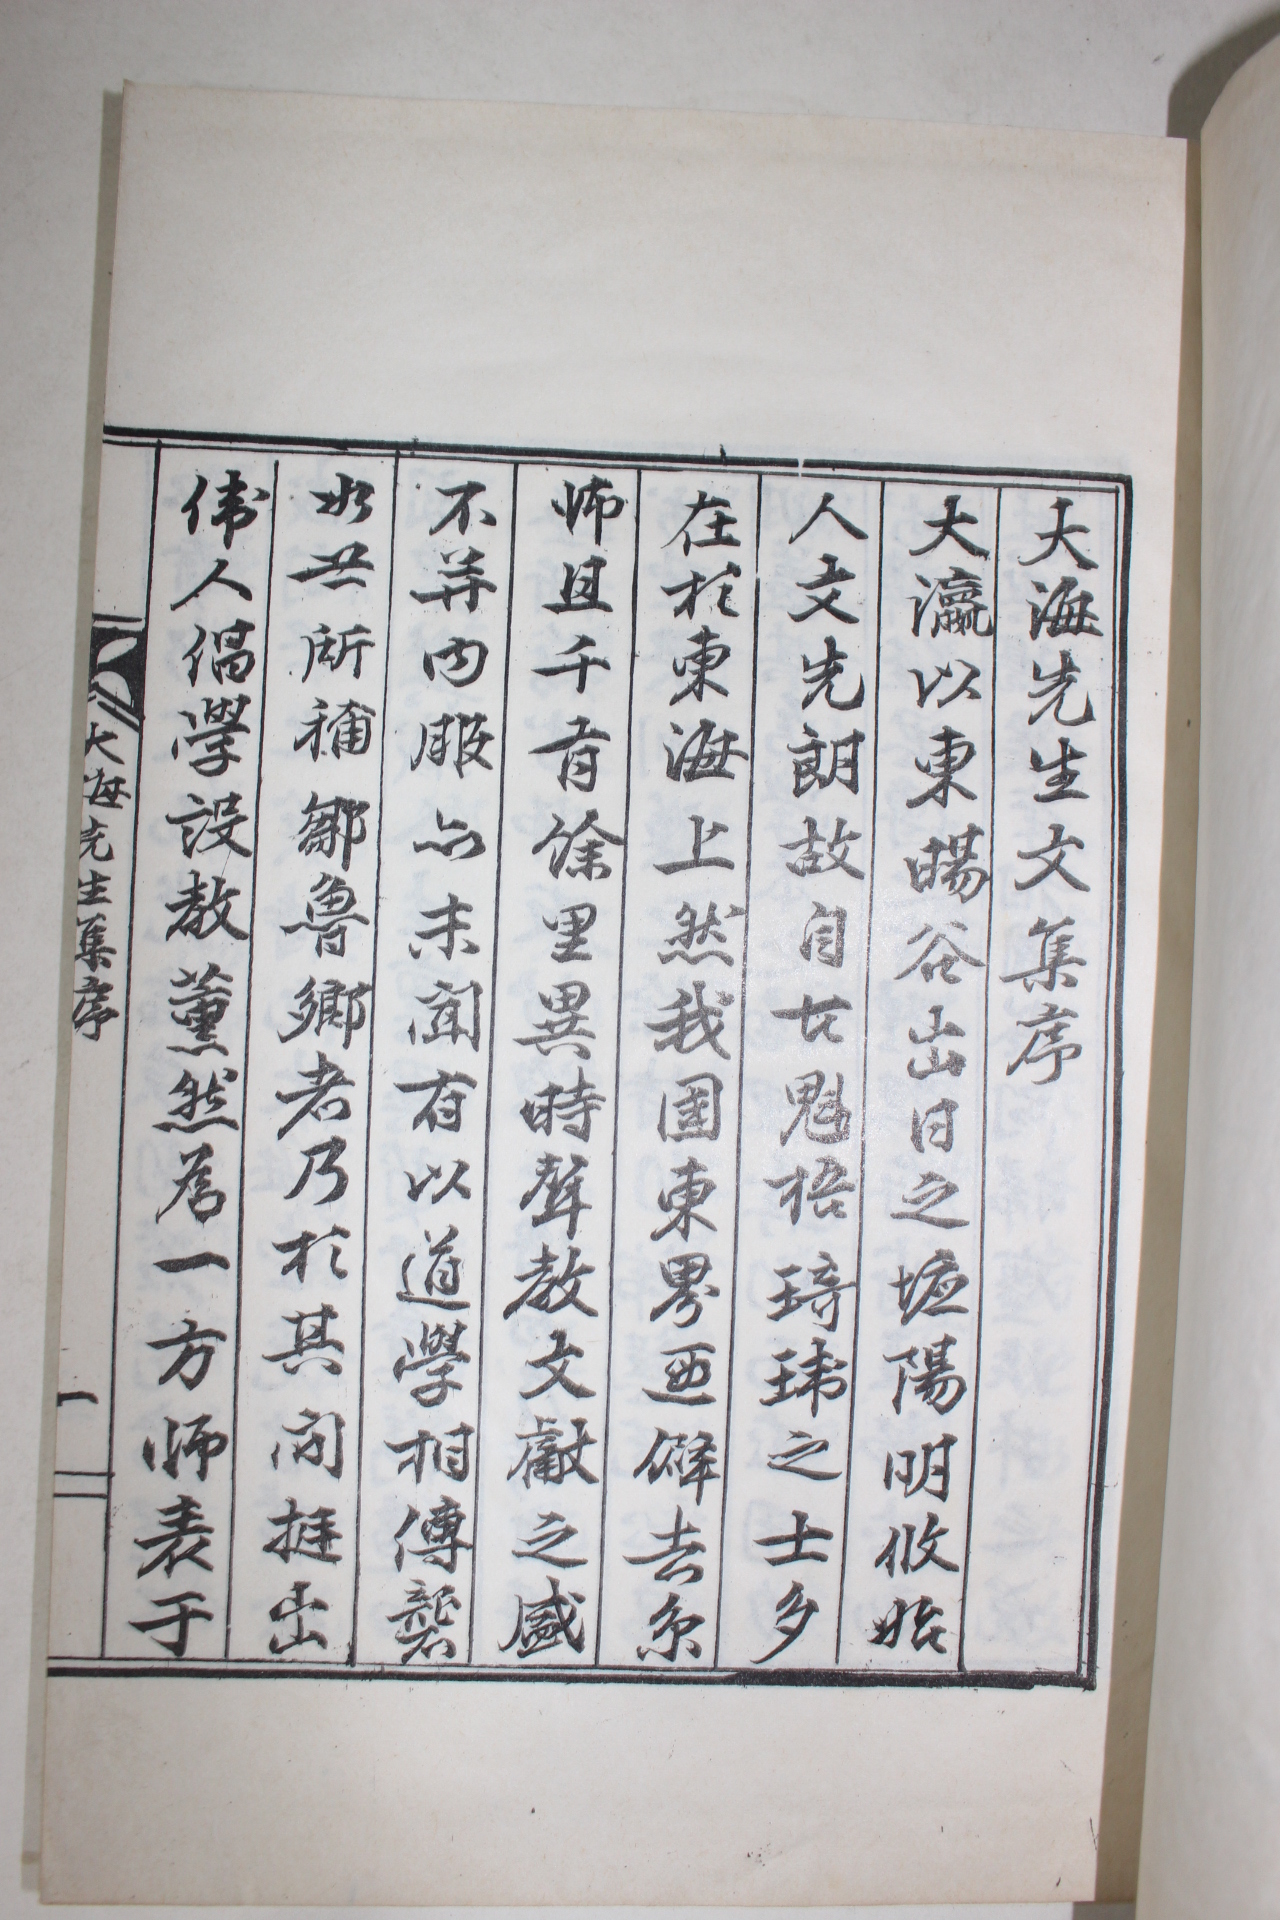 大海先生文集序
大瀛以東暘谷出日之墟陽明攸始
人文先朗故自古魁梧琦瑋之士多
在於東海上然我國東界亟僻去京
師且千有餘里異時聲教文獻之盛
不並內服亦未聞有以道學相傳襲
如世所稱鄒魯鄉者乃於其間挺出
偉人倡學設教薰然爲一方師表于
大海先生集序
一